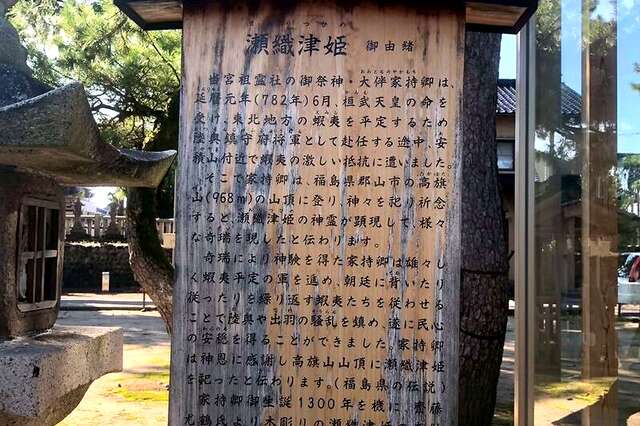 瀬織津姫 御由緒
当宮祖霊社の御祭神・大伴家持卿は、
延暦元年(782年)6月、桓武天皇の命を
受け、東北地方の蝦夷を平定するため
陸奥鎮守府将軍として赴任する途中、安
積山付近で蝦夷の激しい抵抗に遭いました。
そこで家持卿は、福島県郡山市の高旗
山(968m)の山頂に登り、神々を祀り祈念
すると、瀬織津姫の神霊が顕現して、様々
な奇瑞を現したと伝わります。
奇瑞により神験を得た家持卿は雄々し
く蝦夷平定の軍を進め、朝廷に背いたり
従ったりを繰り返す蝦夷たちを従わせる
ことで陸奥や出羽の騒乱を鎮め、遂に民心
の安穏を得ることができました。家持卿
は神恩に感謝し高旗山山頂に瀬織津姫
を祀ったと伝わります。(福島県の伝説)
家持卿御生誕1300年を機に、齋藤
尤鶴氏より木彫りの瀬織津姫の